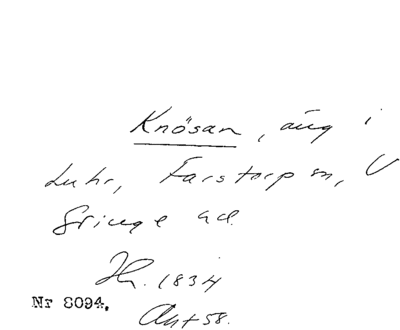 Knösan, äng i
Luhr, Farstorp sn, V
Göinge hd.
Hr. 1834
Akt 58.
Nr 8094.